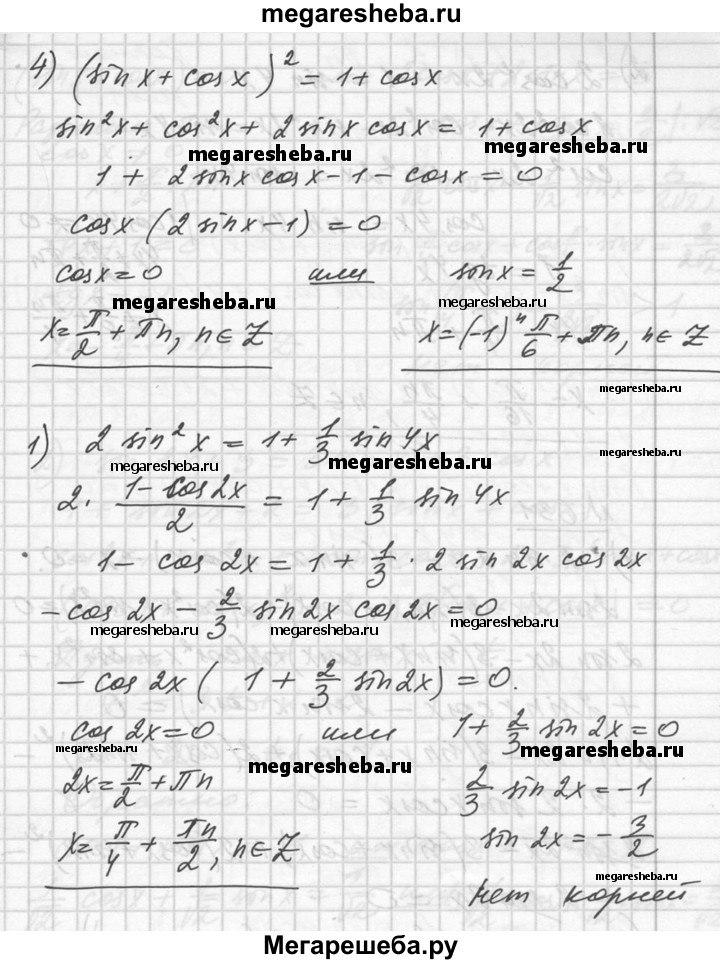 megaresheba.ru
4) (sin x + cos x)² = 1 + cos x
sin² x + cos² x + 2 sin x cos x = 1 + cos x
megaresheba.ru megaresheba.ru
1 + 2 sin x cos x - 1 - cos x = 0
cos x (2 sin x - 1) = 0
cos x = 0 или sin x = 1/2
megaresheba.ru
x = π/2 + πn, n ∈ Z x = (-1)ⁿ π/6 + πn, n ∈ Z
megaresheba.ru
1) 2 sin² x = 1 + 1/3 sin 4x
megaresheba.ru megaresheba.ru megaresheba.ru
2 · (1 - cos 2x)/2 = 1 + 1/3 sin 4x
1 - cos 2x = 1 + 1/3 · 2 sin 2x cos 2x
- cos 2x - 2/3 sin 2x cos 2x = 0
megaresheba.ru megaresheba.ru megaresheba.ru
- cos 2x ( 1 + 2/3 sin 2x) = 0.
cos 2x = 0 или 1 + 2/3 sin 2x = 0
megaresheba.ru megaresheba.ru megaresheba.ru
2x = π/2 + πn 2/3 sin 2x = -1
x = π/4 + πn/2, n ∈ Z sin 2x = - 3/2
megaresheba.ru
нет корней
Мегарешеба.ру